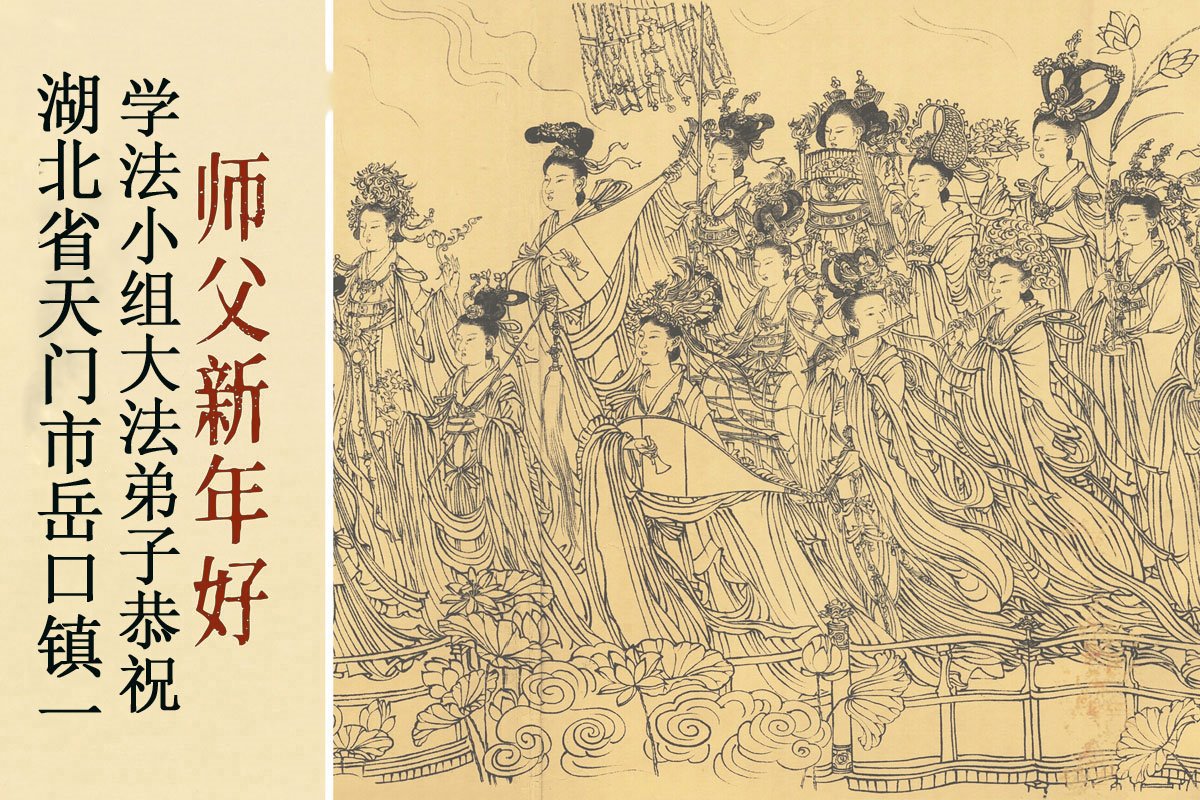 湖北省天门市岳口镇一
学法小组大法弟子恭祝
师父新年好